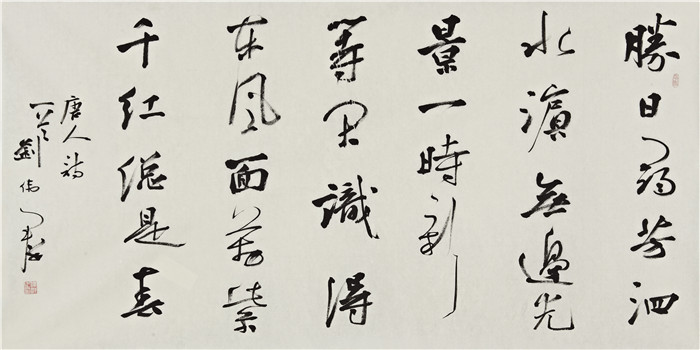 勝日尋芳泗
水濱無邊光
景一時新
等閑識得
東風面萬紫
千紅總是春
唐人詩
劉偉書